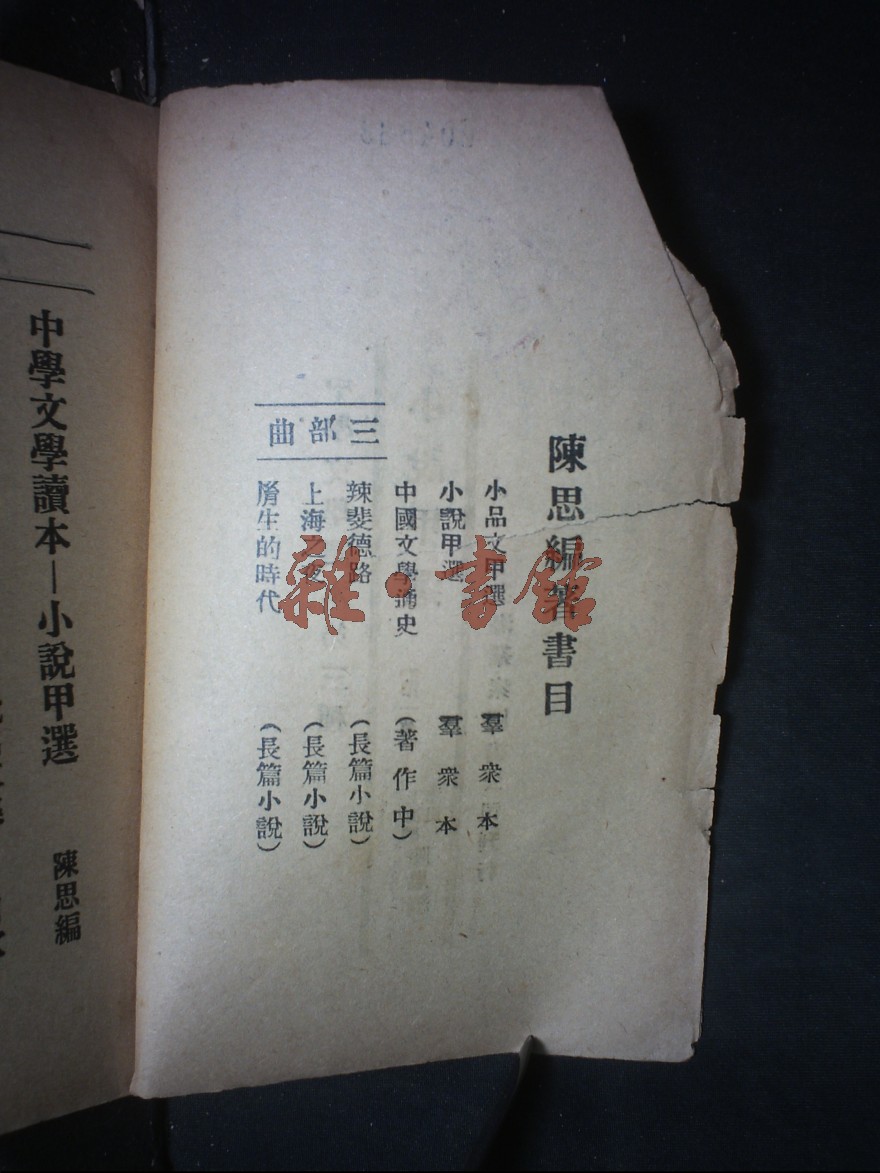 陳思編著書目
小品文甲選 羣衆本
小說甲選 羣衆本
中國文學通史 (著作中)
三部曲
辣斐德路 (長篇小說)
上海之夜 (長篇小說)
生的時代 (長篇小說)
中學文學讀本—小說甲選 陳思編
雜·書館